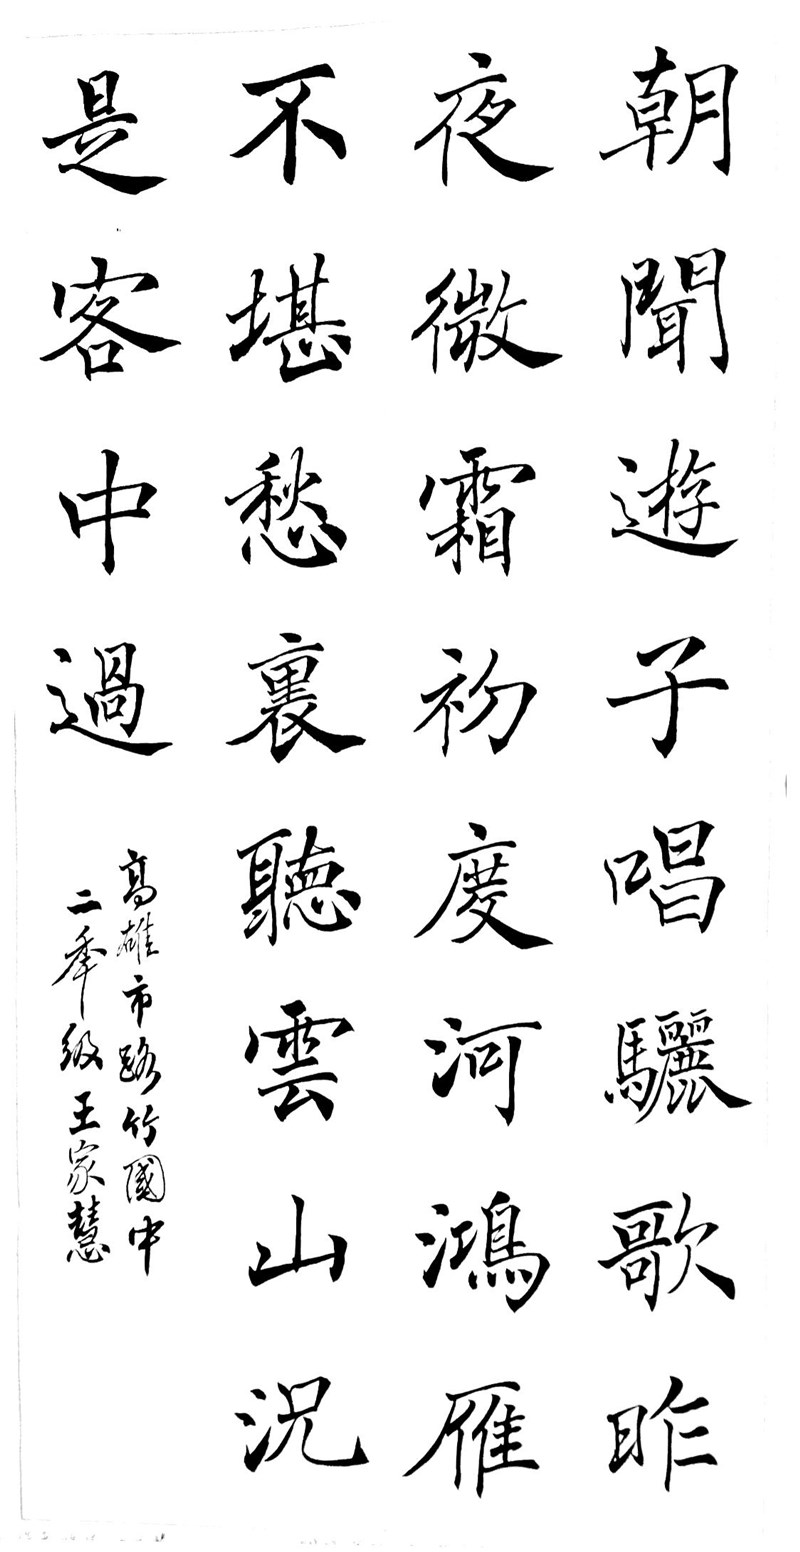 朝聞遊子唱驪歌昨
夜微霜初度河鴻雁
不堪愁裏聽雲山況
是客中過
高雄市路竹國中
二年級王家慧